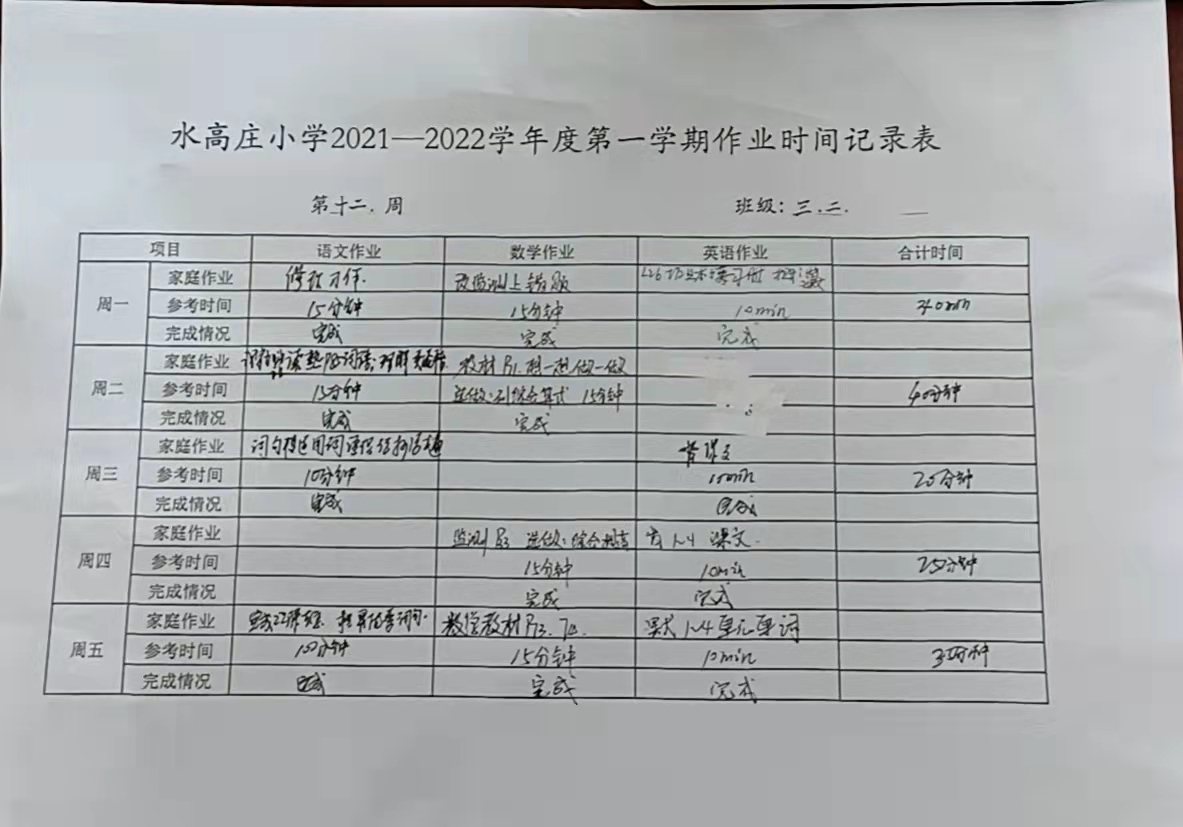 水高庄小学2021—2022学年度第一学期作业时间记录表
第十二.周 班级:三.二.
项目 语文作业 数学作业 英语作业 合计时间
周一 家庭作业 修改习作. 改监测上错题
参考时间 15分钟 15分钟 10min 40min
完成情况 完成 完成 完成
周二 家庭作业 教材P71.想一想做一做
参考时间 15分钟 选做:列综合算式 15分钟 40分钟
完成情况 完成 完成
周三 家庭作业 背课文
参考时间 10分钟 10min 20分钟
完成情况 完成 完成
周四 家庭作业 监测 选做: 1~4 课文.
参考时间 15分钟 10min 25分钟
完成情况 完成 完成
周五 家庭作业 教材P73. 默1~4单元单词
参考时间 10分钟 15分钟 10min 35分钟
完成情况 完成 完成 完成